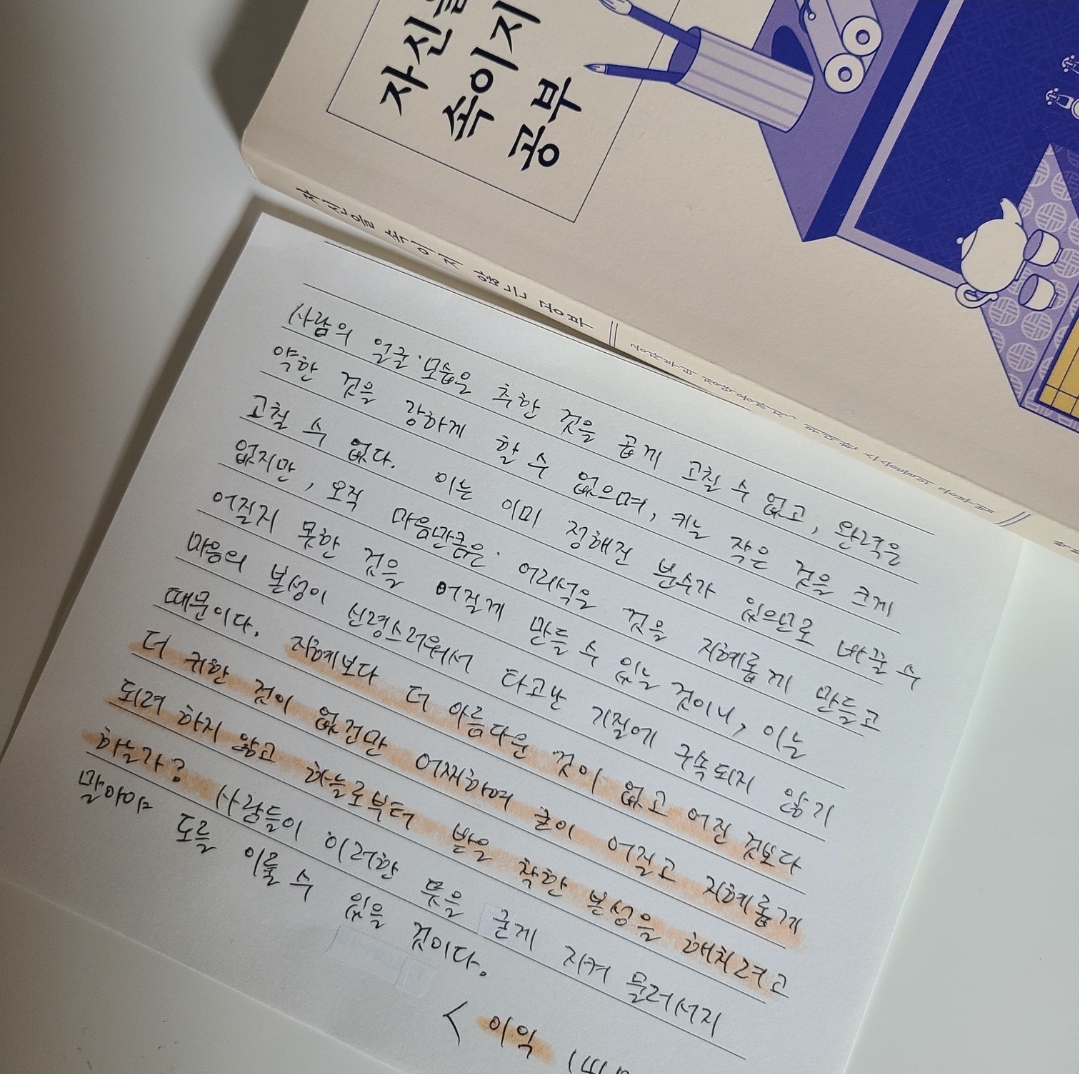 자신을
속이지
공부
사람의 얼굴·모습은 추한 것을 곱게 고칠 수 없고, 완력은
약한 것을 강하게 할 수 없으며, 키는 작은 것을 크게
고칠 수 없다. 이는 이미 정해진 분수가 있으므로 바꿀 수
없지만, 오직 마음만큼은 어리석을 것을 지혜롭게 만들고
어질지 못한 것을 어질게 만들 수 있는 것이니, 이는
마음의 본성이 신령스러워서 타고난 기질에 구속되지 않기
때문이다. 지혜보다 더 아름다운 것이 없고 어진 것보다
더 귀한 것이 없건만 어찌하여 굳이 어질고 지혜롭게
되려 하지 않고 하늘로부터 받은 착한 본성을 해치려고
하는가? 사람들이 이러한 뜻을 굳게 지켜 물러서지
말아야 도를 이룰 수 있을 것이다.
< 이익